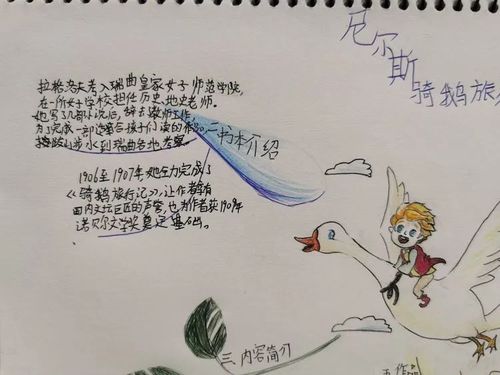 尼尔斯
骑鹅旅
拉格洛夫考入瑞典皇家女子师范学院,
在一所女子学校担任历史、地史老师。
他写了几部小说后,辞去教师工作,
为了完成一部适合孩子们读的作品,
跋山涉水到瑞典各地考察
二书本介绍
1906至1907年她全力完成了
《骑鹅旅行记》,让作者有
国内文坛巨匠的声誉,也为作者获1909年
诺贝尔文学奖奠定基础。
三、内容简介
五、作品